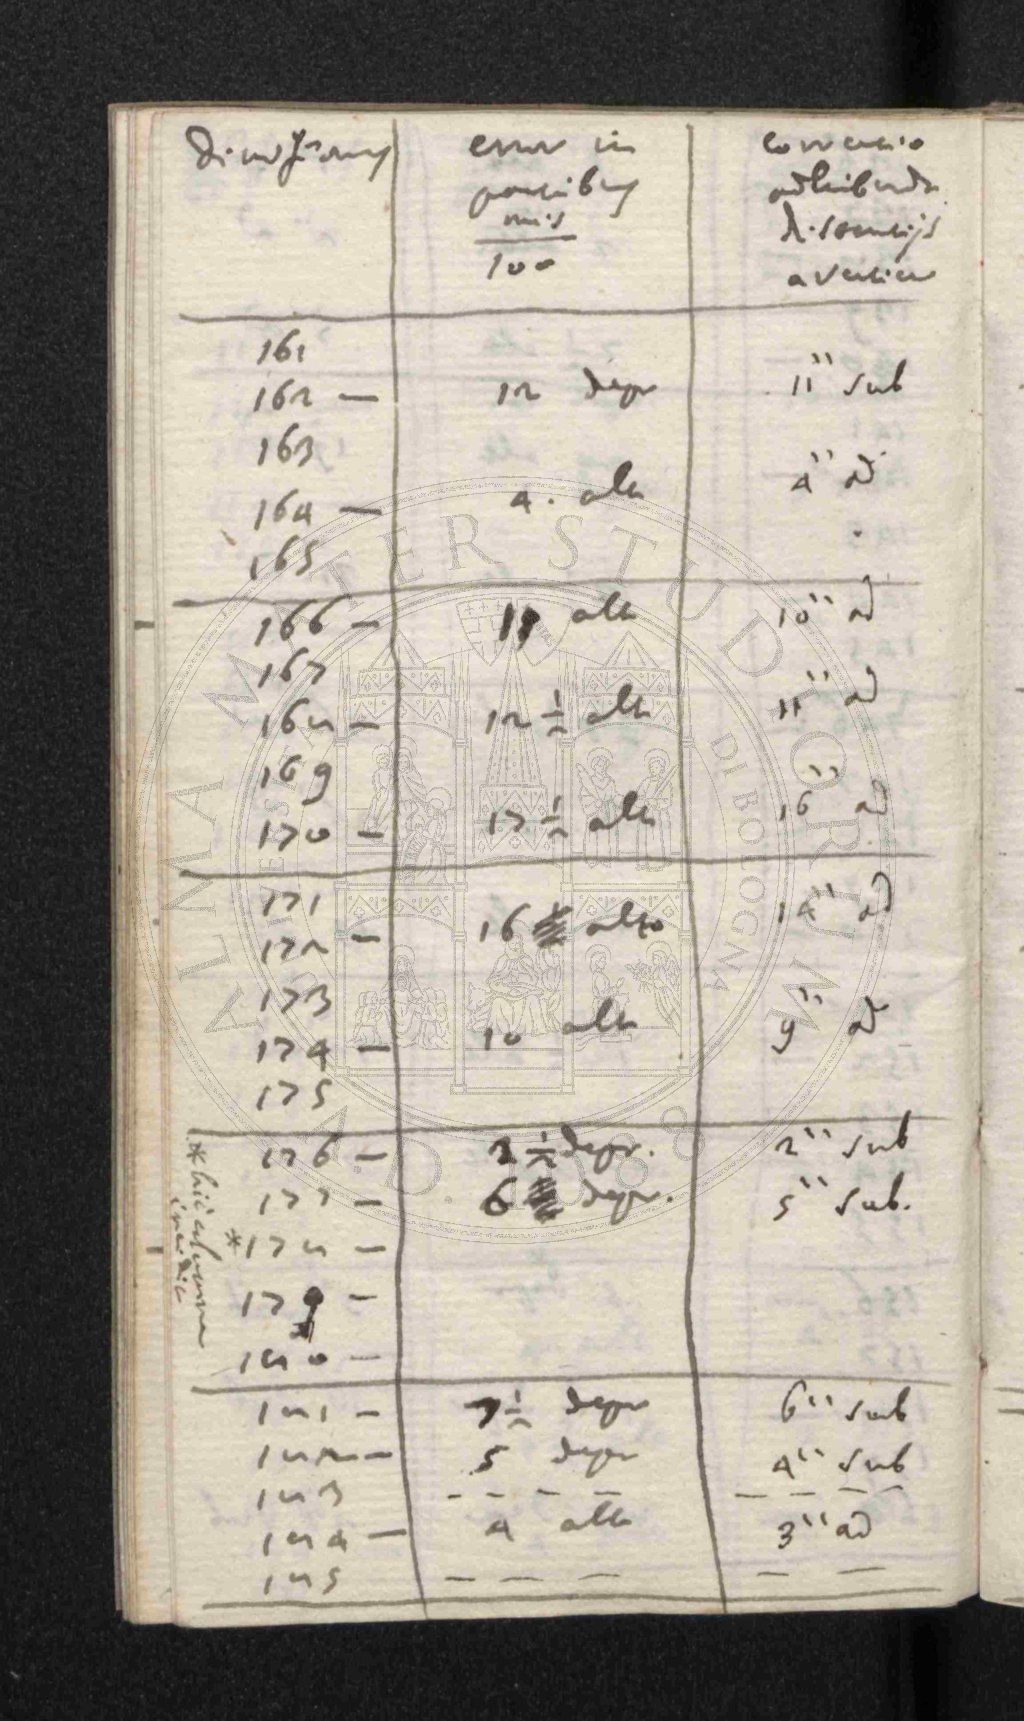 error in correctio
partibus adhibenda
unc. distantijs
100 a vertice
161
162 — 12 depr 11" sub
163
164 — 4. alta 4" ad
165
166 — 11 alta 10" ad
167
168 — 12 1/2 alta 11" ad
169
170 — 17 1/2 alta 16" ad
171
172 — 16 alta 14" ad
173
174 — 10 alta 9" ad
175
176 — 2 1/2 depr. 2" sub
177 — 6 depr. 5" sub.
*178 —
179 —
180 —
181 — 7 1/2 depr 6" sub
182 — 5 depr 4" sub
183 - - - - - - - -
184 — 4 alta 3" ad
185 — — — — —
* hic columna
incidit
ALMA MATER STUDIORUM
UNIVERSITÀ DI BOLOGNA
A.D. 1088